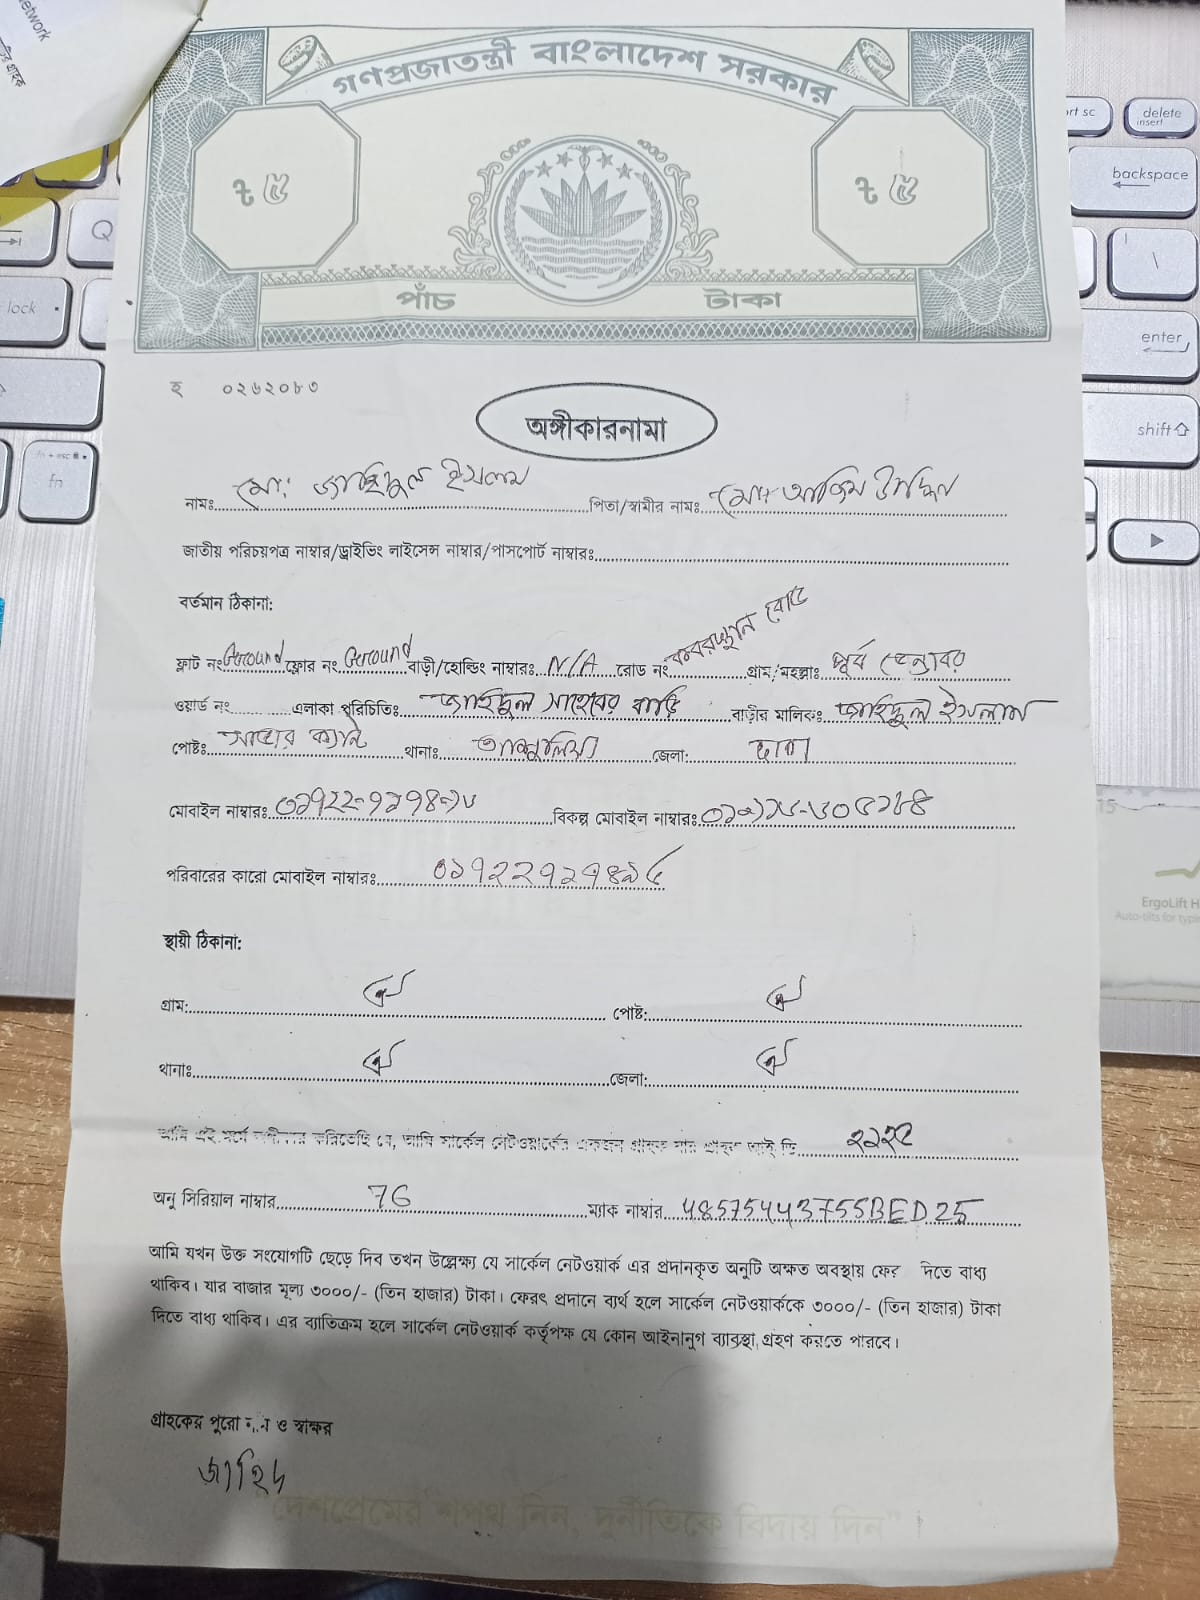 etwork
গ্রাহক
গণপ্রজাতন্ত্রী বাংলাদেশ সরকার
৳ ৫ ৳ ৫
পাঁচ টাকা
হ ০২৬২০৮৩
অঙ্গীকারনামা
নামঃ মো: জাহিদুল ইসলাম পিতা/স্বামীর নামঃ মোঃ আজিম উদ্দিন
জাতীয় পরিচয়পত্র নাম্বার/ড্রাইভিং লাইসেন্স নাম্বার/পাসপোর্ট নাম্বারঃ
বর্তমান ঠিকানা:
ফ্লাট নং Ground ফ্লোর নং Ground বাড়ী/হোল্ডিং নাম্বারঃ N/A রোড নং কবরস্থান রোড গ্রাম/মহল্লাঃ পূর্ব
ওয়ার্ড নং এলাকা পরিচিতিঃ জাহিদুল সাহেবের বাড়ি বাড়ীর মালিকঃ জাহিদুল ইসলাম
পোষ্টঃ সাভার ক্যান্ট থানাঃ আশুলিয়া জেলা: ঢাকা
মোবাইল নাম্বারঃ বিকল্প মোবাইল নাম্বারঃ
পরিবারের কারো মোবাইল নাম্বারঃ
স্থায়ী ঠিকানা:
গ্রাম: ঐ পোষ্ট: ঐ
থানাঃ ঐ জেলা: ঐ
আমি এই মর্মে অঙ্গীকার করিতেছি যে, আমি সার্কেল নেটওয়ার্কের একজন গ্রাহক যার গ্রাহক আই ডি
অনু সিরিয়াল নাম্বার 76 ম্যাক নাম্বার 48575443755BED25
আমি যখন উক্ত সংযোগটি ছেড়ে দিব তখন উল্লেক্ষ্য যে সার্কেল নেটওয়ার্ক এর প্রদানকৃত অনুটি অক্ষত অবস্থায় ফের দিতে বাধ্য
থাকিব। যার বাজার মূল্য ৩০০০/- (তিন হাজার) টাকা। ফেরৎ প্রদানে ব্যর্থ হলে সার্কেল নেটওয়ার্ককে ৩০০০/- (তিন হাজার) টাকা
দিতে বাধ্য থাকিব। এর ব্যাতিক্রম হলে সার্কেল নেটওয়ার্ক কর্তৃপক্ষ যে কোন আইনানুগ ব্যাবস্থা গ্রহণ করতে পারবে।
গ্রাহকের পুরো নাম ও স্বাক্ষর
জাহিদ
"দেশপ্রেমের শপথ নিন, দুর্নীতিকে বিদায় দিন"
prt sc
delete
insert
backspace
Q
\
lock
enter
shift
fn + esc
fn
15
ErgoLift H
Auto-tilts for typi